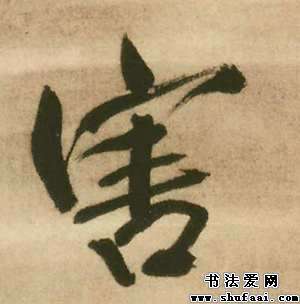 害
书法爱网
www.shufaai.com